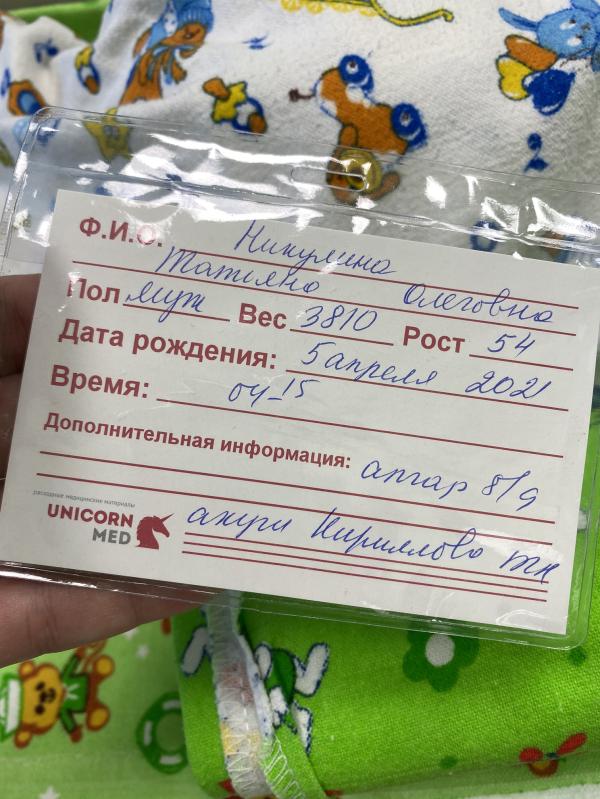 Ф.И.О. Никулина
Татьяна Олеговна
Пол муж Вес 3810 Рост 54
Дата рождения: 5 апреля 2021
Время: 04-15
Дополнительная информация: апгар 8/9
расходные медицинские материалы
UNICORN
MED
акуш Кириллова тн